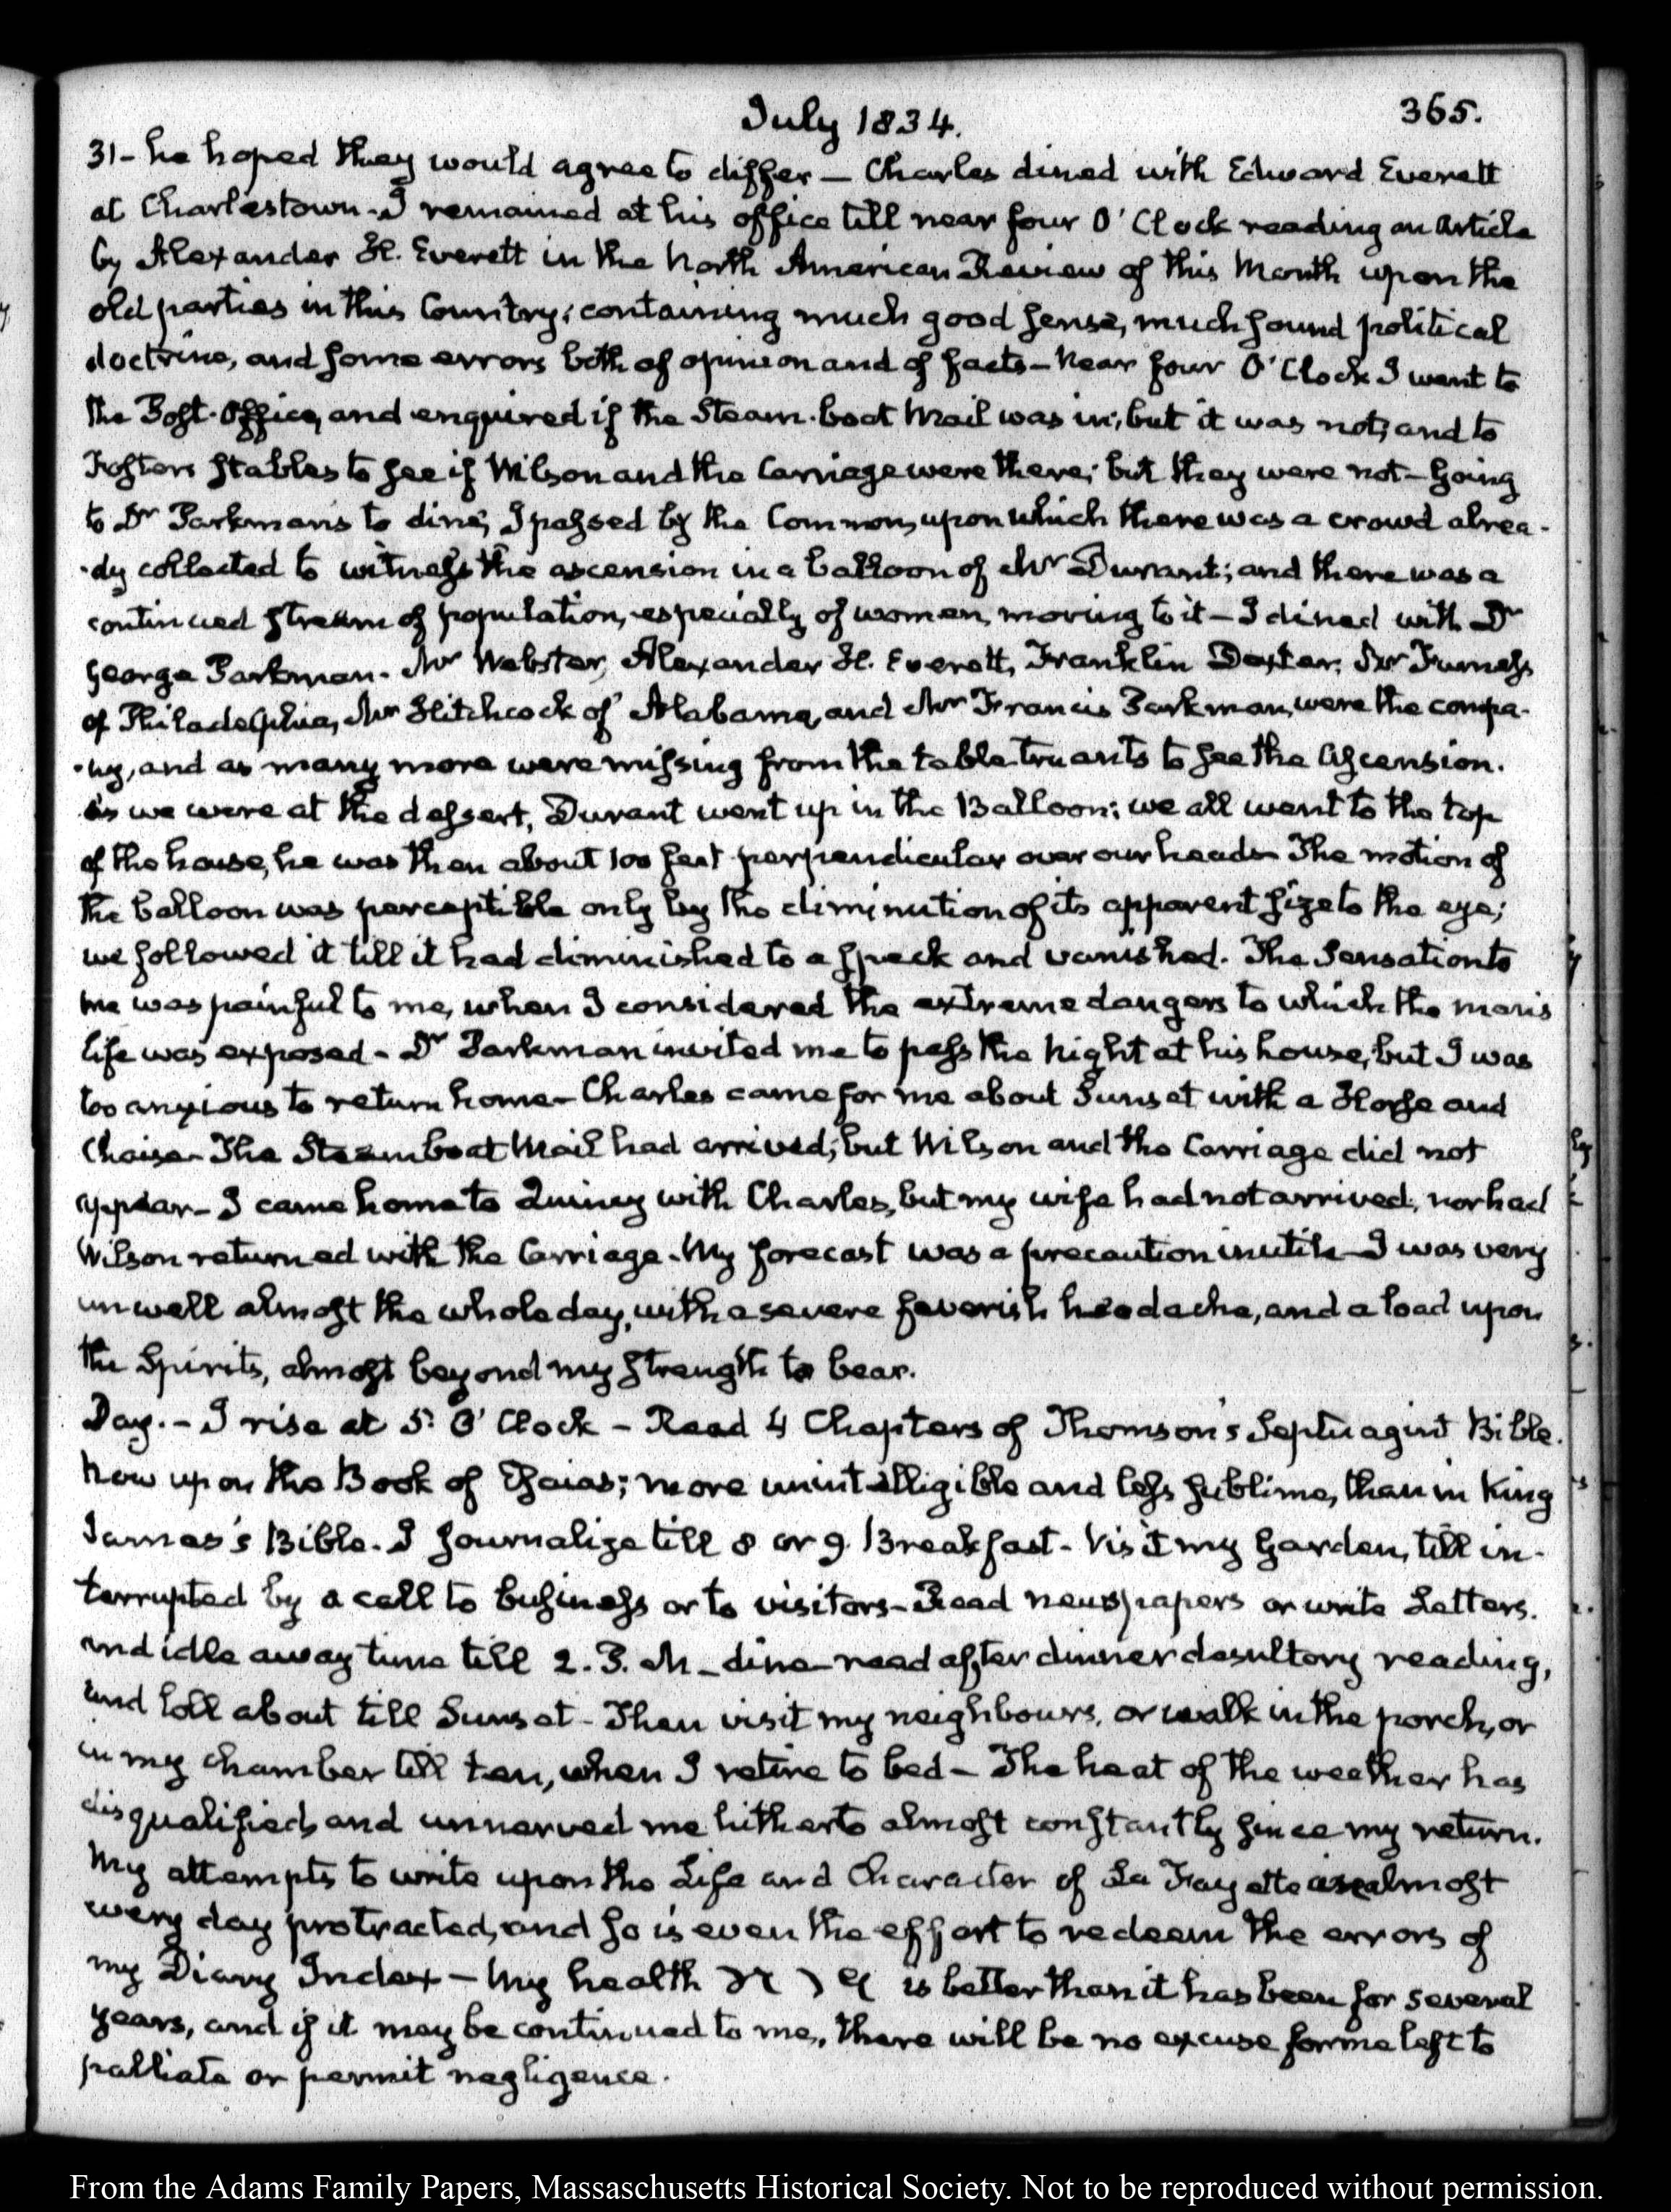 July 1834.
365.
31- he hoped they would agree to differ — Charles dined with Edward Everett
at Charlestown. I remained at his office till near four O'Clock reading an article
by Alexander H. Everett in the North American Review of this Month upon the
old parties in this Country; containing much good sense, much sound political
doctrine, and some errors both of opinion and of facts — Near four O'Clock I went to
the Post-Office, and enquired if the Steam-boat Mail was in; but it was not; and to
Fosters stables to see if Wilson and the Carriage were there; but they were not — Going
to Dr Parkman's to dine, I passed by the Common, upon which there was a crowd alrea-
-dy collected to witness the ascension in a balloon of Mr Durant; and there was a
continued stream of population, especially of women, moving to it — I dined with Dr
George Parkman. Mr Webster, Alexander H. Everett, Franklin Dexter, Mr Furness
of Philadelphia, Mr Hitchcock of Alabama, and Mr Francis Parkman, were the compa-
-ny, and as many more were missing from the table truants to see the Ascension.
As we were at the dessert, Durant went up in the Balloon; we all went to the top
of the house, he was then about 100 feet perpendicular over our heads The motion of
the balloon was perceptible only by the diminution of its apparent size to the eye;
we followed it till it had diminished to a speck and vanished. The Sensation to
me was painful to me, when I considered the extreme dangers to which the man's
life was exposed — Dr Parkman invited me to pass the Night at his house, but I was
too anxious to return home — Charles came for me about Sunset with a Horse and
Chaise — The Steamboat Mail had arrived; but Wilson and the Carriage did not
appear — I came home to Quincy with Charles, but my wife had not arrived, nor had
Wilson returned with the Carriage. My forecast was a precaution inutile — I was very
unwell almost the whole day, with a severe feverish headache, and a load upon
the Spirits, almost beyond my strength to bear.
Day. — I rise at 5. O'Clock — Read 4 Chapters of Thomson's Septuagint Bible.
Now upon the Book of Esaias; more unintelligible and less sublime, than in King
James's Bible. I journalize till 8 or 9. Breakfast. Visit my Garden, till in-
terrupted by a call to business or to visitors — Read newspapers or write Letters.
and idle away time till 2. P. M — dine — read after dinner desultory reading,
and loll about till Sunset — Then visit my neighbours, or walk in the porch, or
in my chamber till ten, when I retire to bed — The heat of the weather has
disqualified and unnerved me hitherto almost constantly since my return.
My attempts to write upon the Life and Character of La Fayette are almost
every day protracted, and so is even the effort to redeem the errors of
my Diary Index — My health is better than it has been for several
years, and if it may be continued to me, there will be no excuse for me left to
palliate or permit negligence.
From the Adams Family Papers, Massachusetts Historical Society. Not to be reproduced without permission.